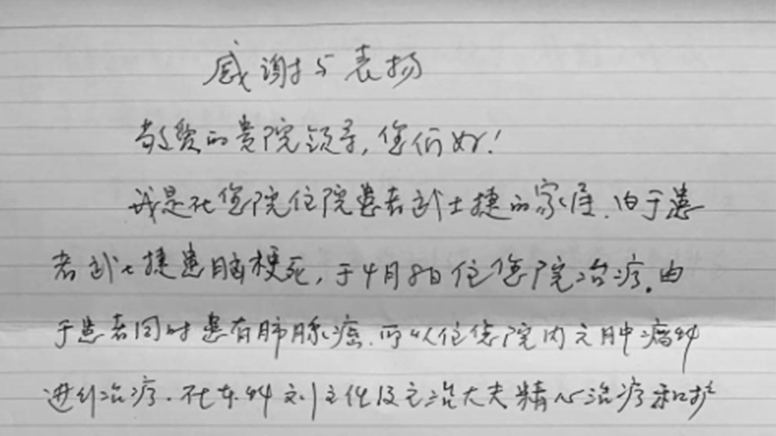 感谢与表扬
敬爱的贵院领导，您们好！
我是在您院住院患者武士捷的家属，由于患
者武士捷患脑梗死，于4月8日住您院治疗。由
于患者同时患有肺腺癌，所以住您院内三肿瘤科
进行治疗。在本科刘主任及主治大夫精心治疗和护